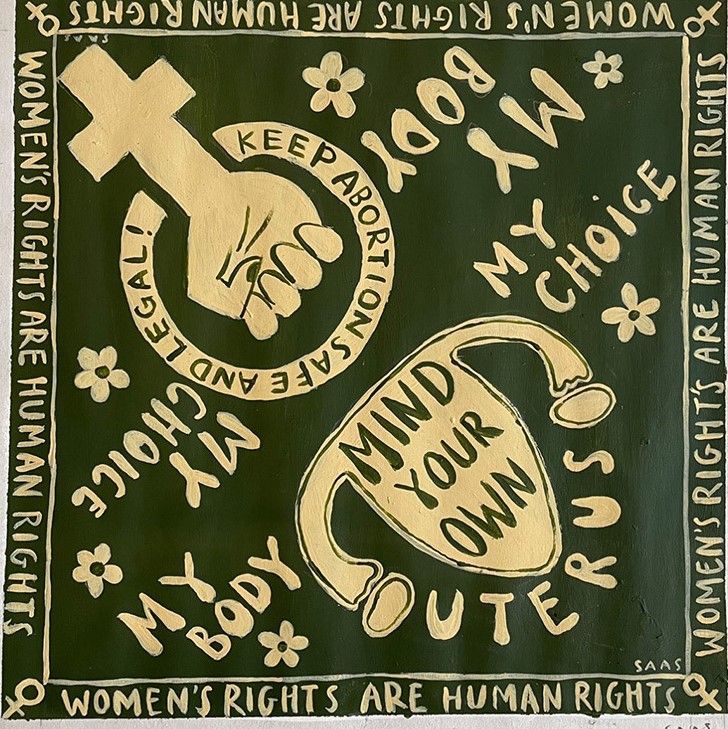 WOMEN'S RIGHTS ARE HUMAN RIGHTS
WOMEN'S RIGHTS ARE HUMAN RIGHTS
WOMEN'S RIGHT'S ARE HUMAN RIGHTS
WOMEN'S RIGHTS ARE HUMAN RIGHTS
SAAS
KEEP ABORTION SAFE AND LEGAL!
MY
BODY
MY
CHOICE
MIND
YOUR
OWN
UTERUS
MY
CHOICE
MY
BODY
SAAS
SAAS